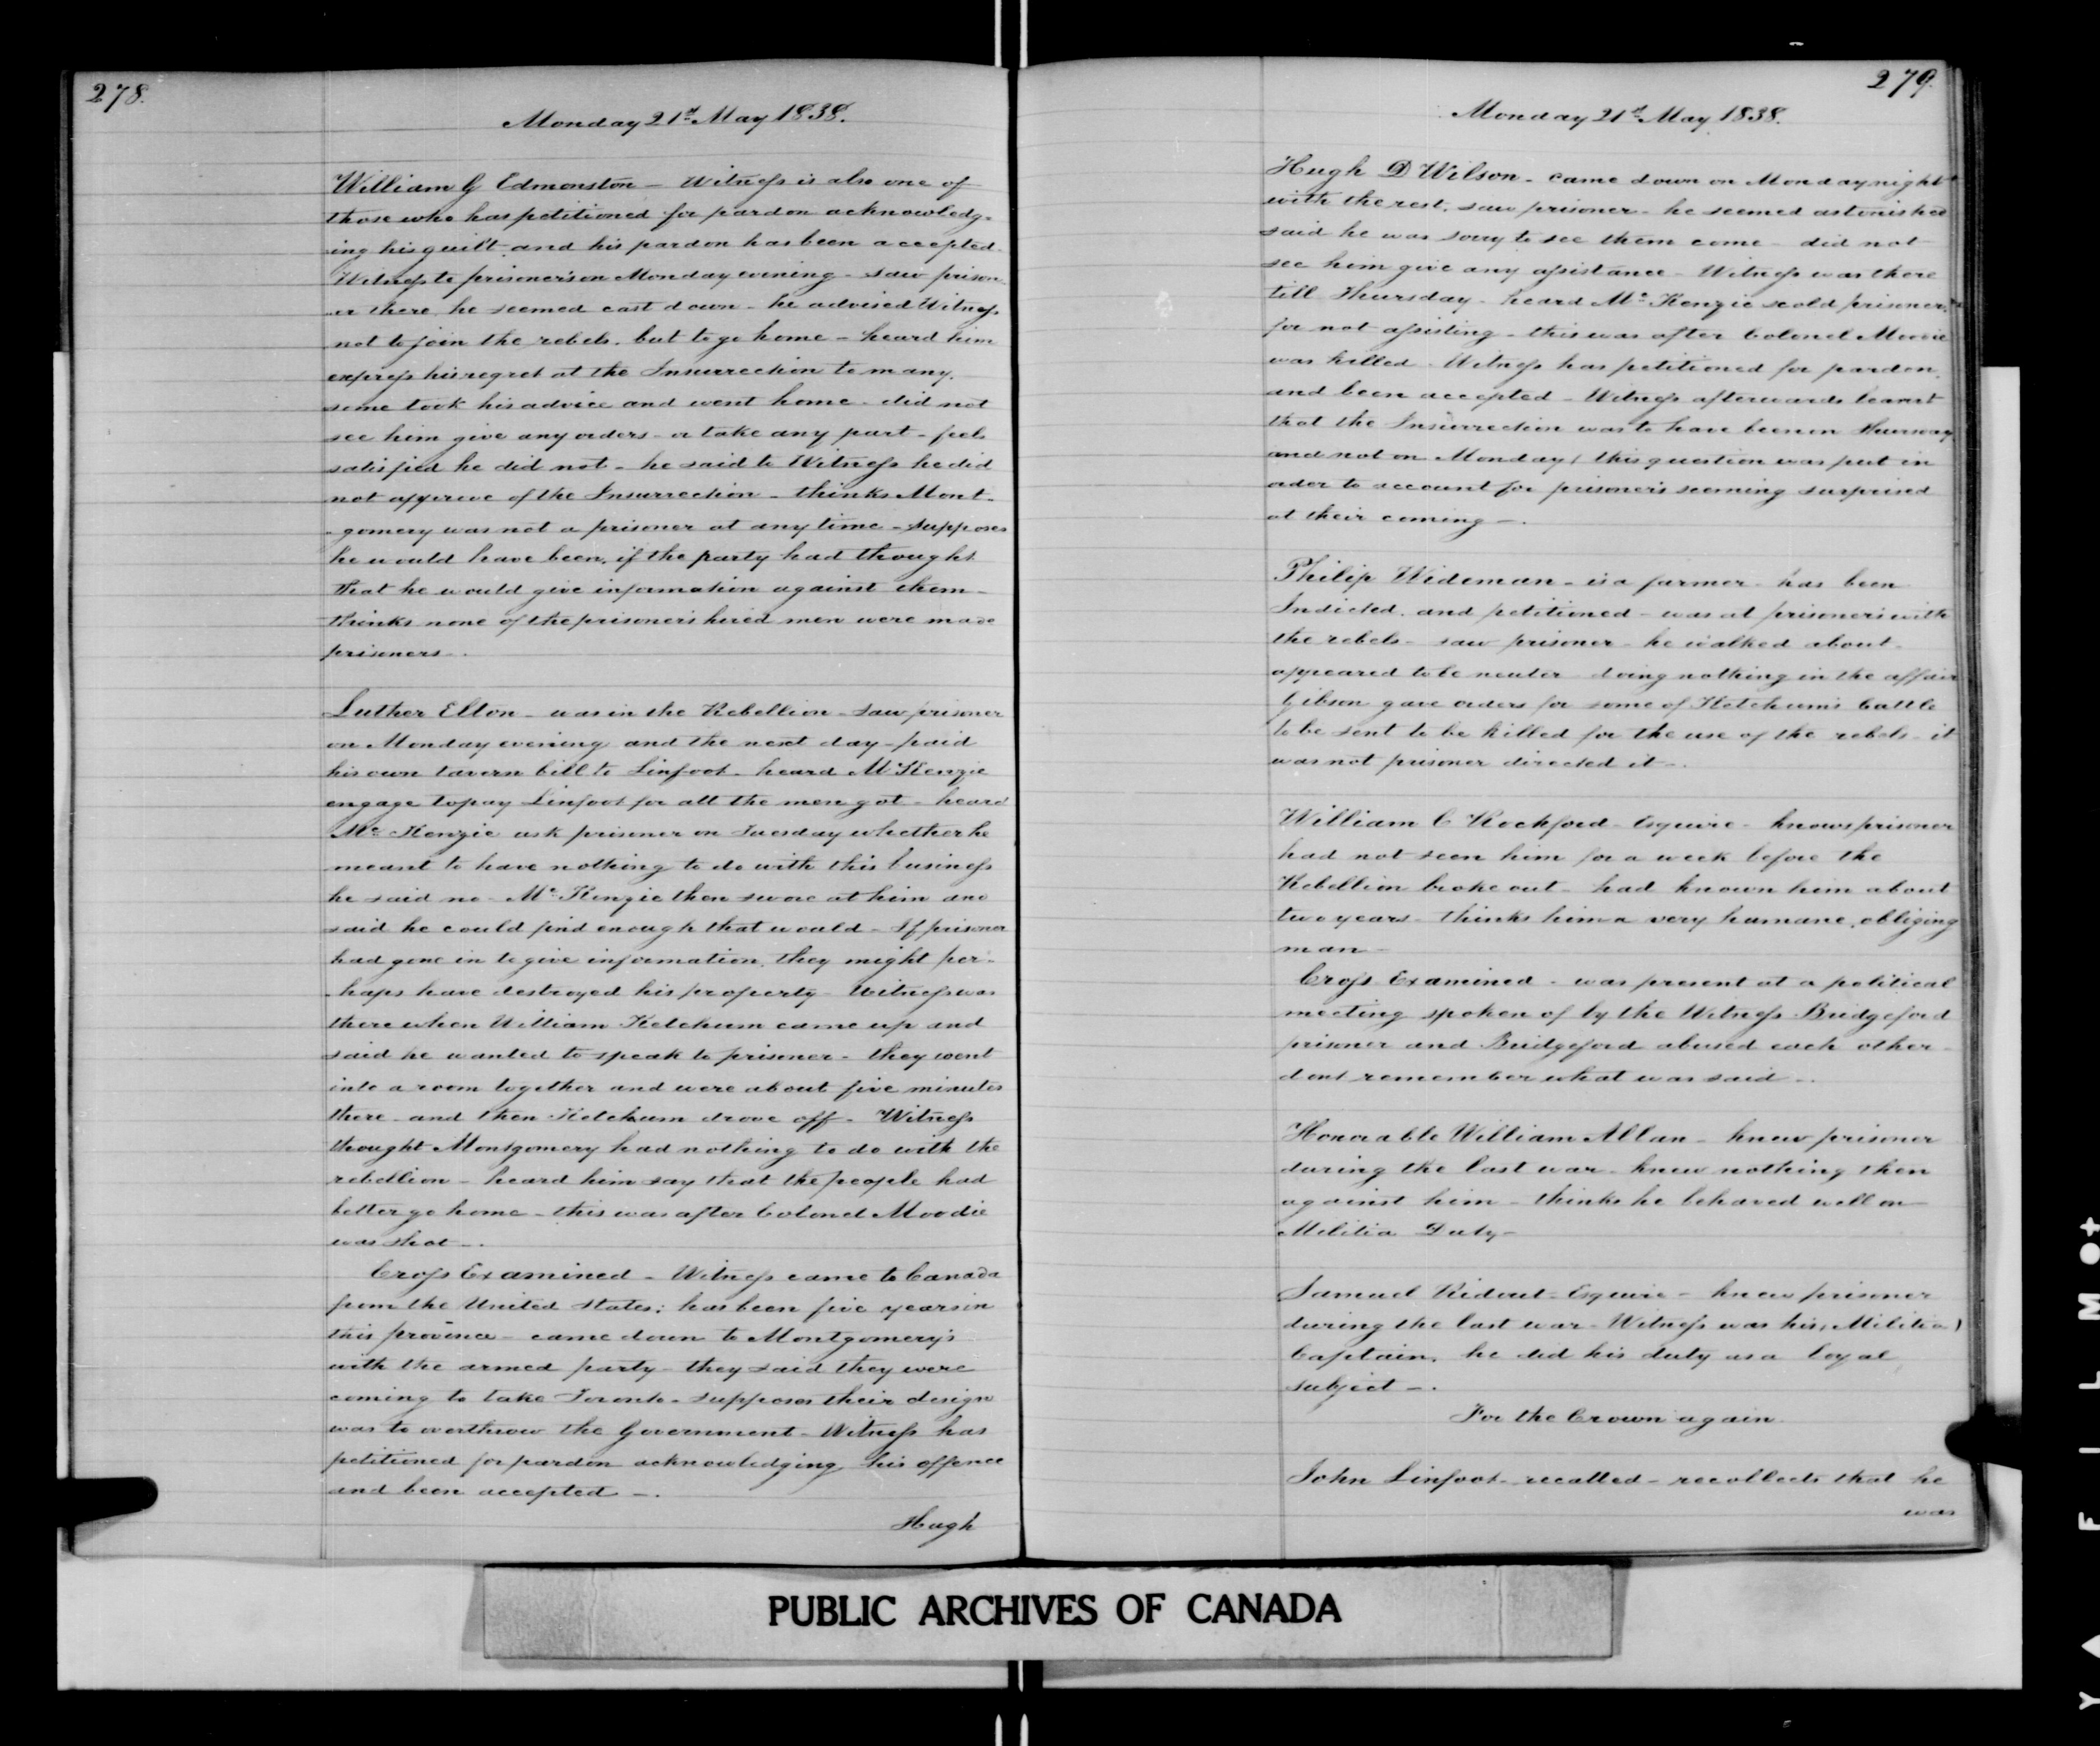 278.
Monday 21st May 1838.
William G Edmonston – Witness is also one of
those who has petitioned for pardon acknowledg-
ing his guilt and his pardon has been accepted –
Witness to prisoner's on Monday evening – saw prison-
er there he seemed cast down – he advised Witness
not to join the rebels. but to go home – heard him
express his regret at the Insurrection to many.
some took his advice and went home – did not
see him give any orders – or take any part – feels
satisfied he did not – he said to Witness he did
not approve of the Insurrection – thinks Mont-
-gomery was not a prisoner at any time – supposes
he would have been, if the party had thought
that he would give information against them –
thinks none of the prisoner's hired men were made
prisoners –.
Luther Elton – was in the Rebellion – saw prisoner
on Monday evening and the next day – paid
his own tavern bill to Linfoot – heard McKenzie
engage to pay Linfoot for all the men got – heard
McKenzie ask prisoner on Tuesday whether he
meant to have nothing to do with this business
he said no – McKenzie then swore at him and
said he could find enough that would – If prisoner
had gone in to give information, they might per-
-haps have destroyed his property – Witness was
there when William Ketchum came up and
said he wanted to speak to prisoner – they went
into a room together and were about five minutes
there – and then Ketchum drove off – Witness
thought Montgomery had nothing to do with the
rebellion – heard him say that the people had
better go home – this was after Colonel Moodie
was shot –.
Cross Examined – Witness came to Canada
from the United States; has been five years in
this province – came down to Montgomery's
with the armed party – they said they were
coming to take Toronto – supposes their design
was to overthrow the Government – Witness has
petitioned for pardon acknowledging his offence
and been accepted –.
Hugh
279.
Monday 21st May 1838.
Hugh D Wilson – came down on Monday night
with the rest, saw prisoner – he seemed astonished
said he was sorry to see them come – did not
see him give any assistance – Witness was there
till Thursday – heard McKenzie scold prisoner
for not assisting – this was after Colonel Moodie
was killed – Witness has petitioned for pardon,
and been accepted – Witness afterwards learnt
that the Insurrection was to have been on Thursday
and not on Monday ( this question was put in
order to account for prisoner's seeming surprised
at their coming –.
Philip Wideman – is a farmer – has been
Indicted, and petitioned – was at prisoner's with
the rebels – saw prisoner – he walked about –
appeared to be neuter doing nothing in the affair
Gibson gave orders for some of Ketchum's Cattle
to be sent to be killed for the use of the rebels – it
was not prisoner directed it –.
William C Rockford – Esquire – knows prisoner
had not seen him for a week before the
Rebellion broke out – had known him about
two years – thinks him a very humane, obliging
man –
Cross Examined – was present at a political
meeting spoken of by the Witness Bridgeford
prisoner and Bridgeford abused each other –
dont remember what was said –.
Honorable William Allan – knew prisoner
during the last war – knew nothing then
against him – thinks he behaved well on
Militia Duty –
Samuel Ridout – Esquire – knew prisoner
during the last war – Witness was his (Militia)
Captain, he did his duty as a loyal
subject –.
For the Crown again.
John Linfoot – recalled – recollects that he
was
PUBLIC ARCHIVES OF CANADA